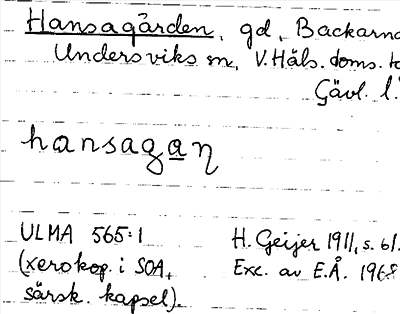 Hansagården, gd, Backarna
Undersviks sn, V. Häls. doms.
Gävl. l.
hansaga̲ŋ
ULMA 565:1
(xerokop. i SOA,
särsk. kapsel).
H. Geijer 1911, s. 61.
Exc. av E.Å. 1968